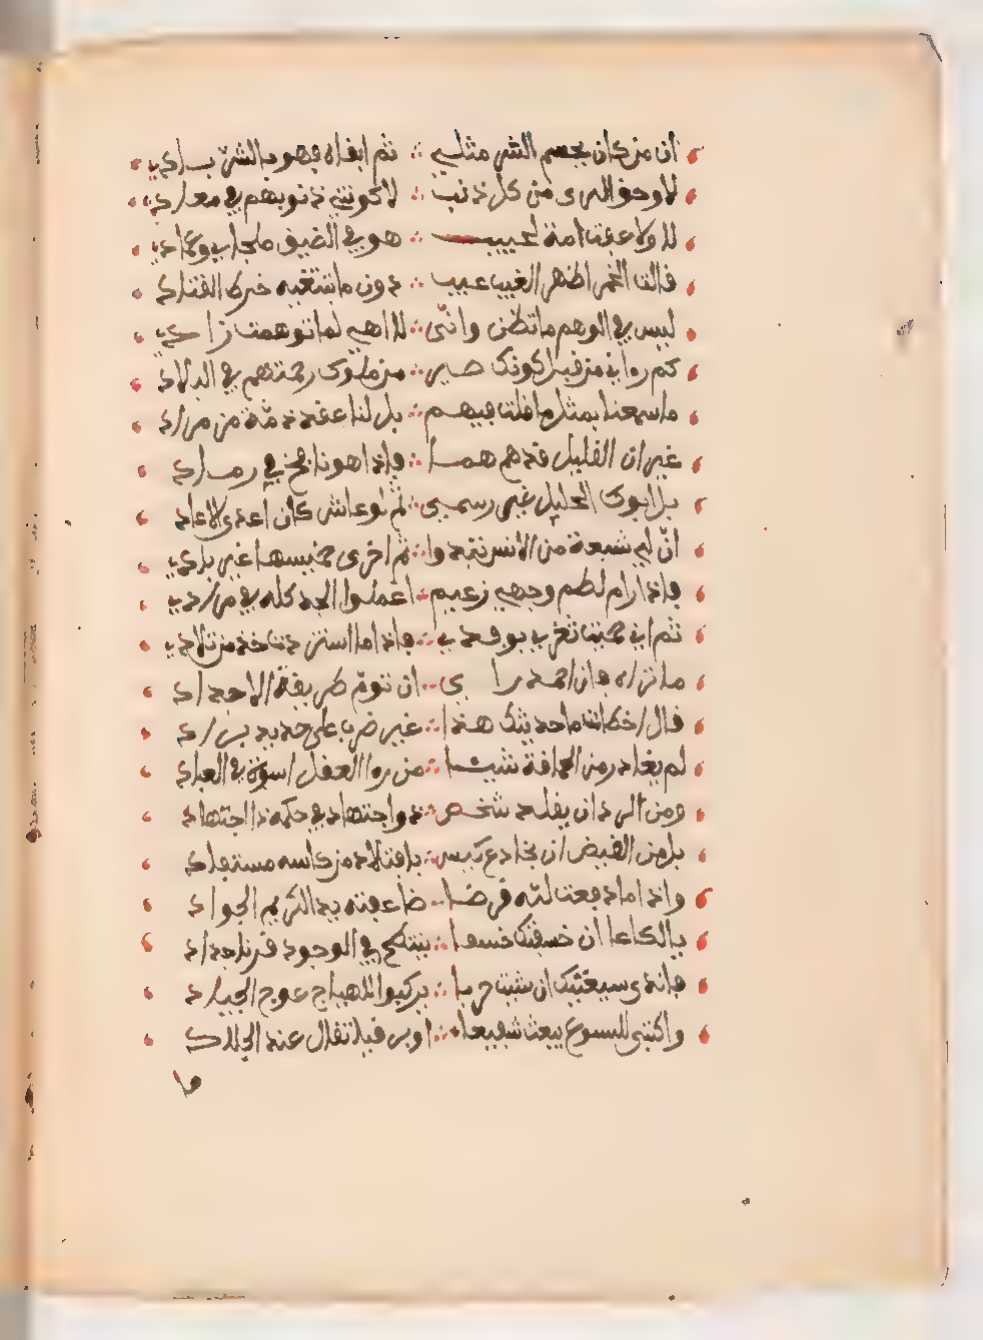 ان من كان يحسم الشر مثلي ∴ ثم ابقاه فهو بالشر بادي
لا وحق البرى من كل ذنب ∴ لا كونتي ذنوبهم في معادي
لا ولا عفت امة لحبيب ∴ هو في الضيق ملجاي وعمادي
قالت الخمر اظهر الغيب عيب ∴ دون ما تبتغيه خرط القتاد
ليس في الوهم ما تظن وانى ∴ لا اهي لما توهمت زادي
كم رواني من قبل كونك ∴ من ملوك رمتهم في البلاد
ما سمعنا بمثل ما قلت فيهم ∴ بل لنا عقد ذمة من مراد
غير ان القليل قد هم هما ∴ فاذا هو نافخ في رماد
بل ابوك الخليل غير رسمي ∴ ثم لو عاش كان اعدى الاعاد
ان لي شيعة من الانس تبدوا ∴ ثم اخرى جنسها غير بادي
فاذا رام لطم وجهي زعيم ∴ اعملوا الجد كله في مرادي
ثم اني حيث تغرب بوقدي ∴ فاذا ما استزدت خذ من تلادي
ما تراه فان احمد رابي ∴ ان تؤم طريقة الاجداد
قال اخطات ما حديثك هذا ∴ غير ضرب على حديد براد
لم يغادر من الحماقة شيئا ∴ من روا العقل اسوة في العباد
ومن الرد ان يقلد شخص ∴ ذو اجتهاد في حكمه ذا اجتهاد
بل من القبض ان يخادع كيس ∴ باقتلاد من كاسه مستفاد
واذا ما دفعت لله قرضا ∴ ضاعفته يد الكريم الجواد
يالكاعا ان خسفتك خسفا ∴ ينتكح في الوجود قرنا حداد
فانذى سيغتيك ان شيت حربا ∴ يركبوا للهياج عوج الجياد
واكتبى للسوع يبعث شفيعا ∴ او برقيا تقال عند الجلاد
ما